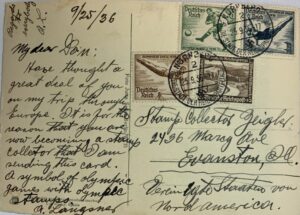 9/25/36
Goods
to
everybody
A.L.
My dear Dan:
Have thought a
great deal of you
on my trip through
Europe. It is for the
reason that you are
now becoming a stamp
collector that I am
sending this card.
A symbol of olympic
games with olympic
stamps
A. Langsner
Deutsches
Reich
Deutsches Reich
Deutsches Reich
Stamp Collector Zeigler
2436 Marcy Ave
Evanston, Ill
Verein Staaten von
Nord america.